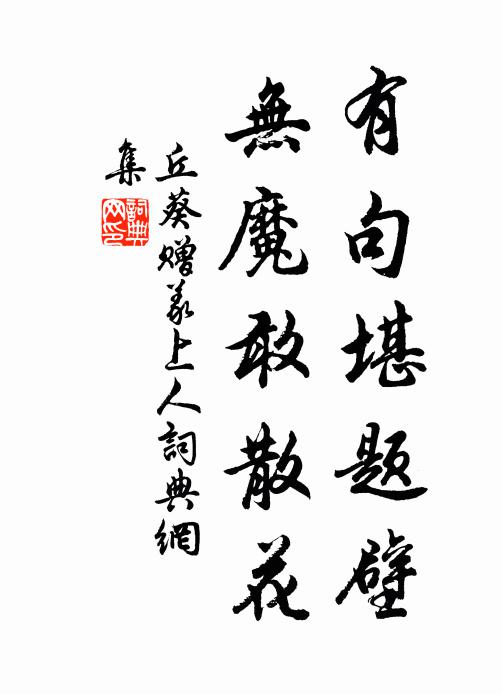 有句堪题壁
無魔敢散花
丘葵贈義上人詞典網
集
詞典
网印